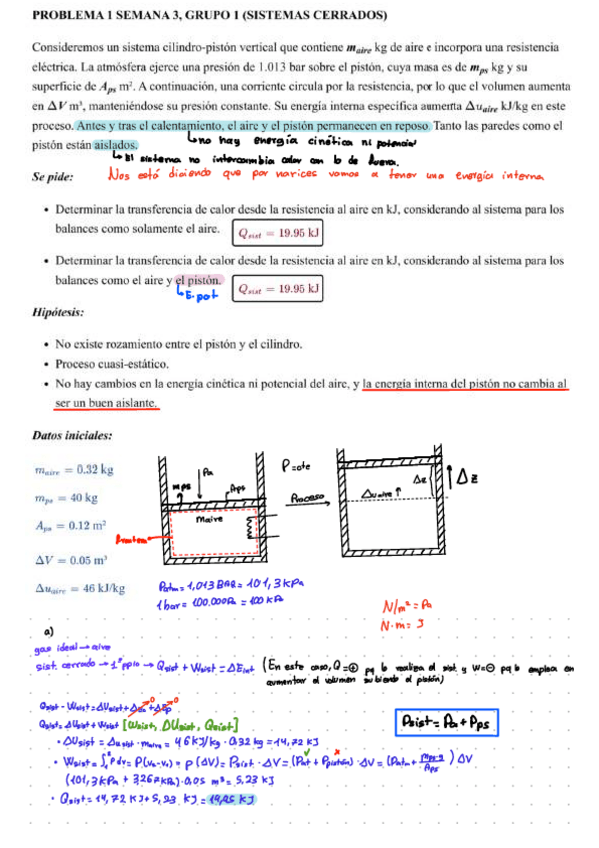 PROBLEMA 1 SEMANA 3, GRUPO 1 (SISTEMAS CERRADOS)
Consideremos un sistema cilindro-pistón vertical que contiene m_aire kg de aire e incorpora una resistencia
eléctrica. La atmósfera ejerce una presión de 1.013 bar sobre el pistón, cuya masa es de m_ps kg y su
superficie de A_ps m². A continuación, una corriente circula por la resistencia, por lo que el volumen aumenta
en ΔV m³, manteniéndose su presión constante. Su energía interna especifica aumenta Δu_aire kJ/kg en este
proceso. Antes y tras el calentamiento, el aire y el pistón permanecen en reposo. Tanto las paredes como el
pistón están aislados.
no hay energía cinética ni potencial
El sistema no intercambia calor con lo de fuera.
Se pide:
Nos está diciendo que por narices vamos a tener una energía interna
• Determinar la transferencia de calor desde la resistencia al aire en kJ, considerando al sistema para los
balances como solamente el aire.
Q_sist = 19.95 kJ
• Determinar la transferencia de calor desde la resistencia al aire en kJ, considerando al sistema para los
balances como el aire y el pistón.
E.pot
Q_sist = 19.95 kJ
Hipótesis:
• No existe rozamiento entre el pistón y el cilindro.
• Proceso cuasi-estático.
• No hay cambios en la energía cinética ni potencial del aire, y la energía interna del pistón no cambia al
ser un buen aislante.
Datos iniciales:
m_aire = 0.32 kg
m_ps = 40 kg
A_ps = 0.12 m²
ΔV = 0.05 m³
Δu_aire = 46 kJ/kg
mps
Pa
Aps
maire
frontera
P=cte
Proceso
Δuaire ↑
Δz
Δz
Patm = 1,013 BAR = 101,3 kPa
1 bar = 100.000Pa = 100 kPa
N/m² = Pa
N·m = J
a)
gas ideal → aire
sist. cerrado → 1º ppio → Qsist + Wsist = ΔEint (En este caso, Q=⊕ pq lo realiza el sist. y W=⊖ pq lo emplea en
aumentar el volumen subiendo el pistón)
Qsist - Wsist = ΔUsist + ΔEc + ΔEp
0
0
Qsist = ΔUsist + Wsist [Wsist, ΔUsist, Qsist]
Psist = Pa + Pps
• ΔUsist = Δusist · maire = 46 kJ/kg · 0.32 kg = 14,72 kJ
• Wsist = ∫₁² p dv = P(V₂-V₁) = p (ΔV) = Psist · ΔV = (Pat + Ppistón) · ΔV = (Patm + mps·g/Aps) ΔV
(101,3 kPa + 3,267 kPa) · 0.05 m³ = 5,23 kJ
• Qsist = 14,72 KJ + 5,23 kJ = 19,95 kJ